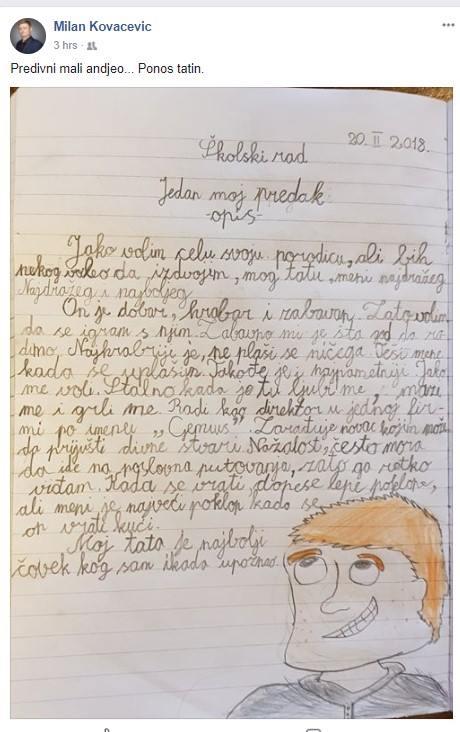 Milan Kovacevic
3 hrs ·
Predivni mali andjeo... Ponos tatin.
20. II 2018.
Školski rad
Jedan moj predak
-opis-
Jako volim celu svoju porodicu, ali bih
nekog voleo da izdvojim, mog tatu, meni najdražeg
Najdražeg i najboljeg
On je dobar, hrabar i zabavan. Zato volim
da se igram s njim. Zabavno mi je šta god da ra-
dimo. Najhrabriji je, ne plaši se ničega. Teši mene
kada se uplašim. Takođe je i najpametniji. Jako
me voli. Stalno kada je tu ljubi me, mazi
me i grli me. Radi kao direktor u jednoj fir-
mi po imenu „Genius". Zarađuje novac kojim može
da priušti divne stvari. Nažalost, često mora
da ide na poslovna putovanja, zato ga retko
viđam. Kada se vrati, donese lepe poklone,
ali meni je najveći poklon kada se
on vrati kući.
Moj tata je najbolji
čovek kog sam ikada upoznao.